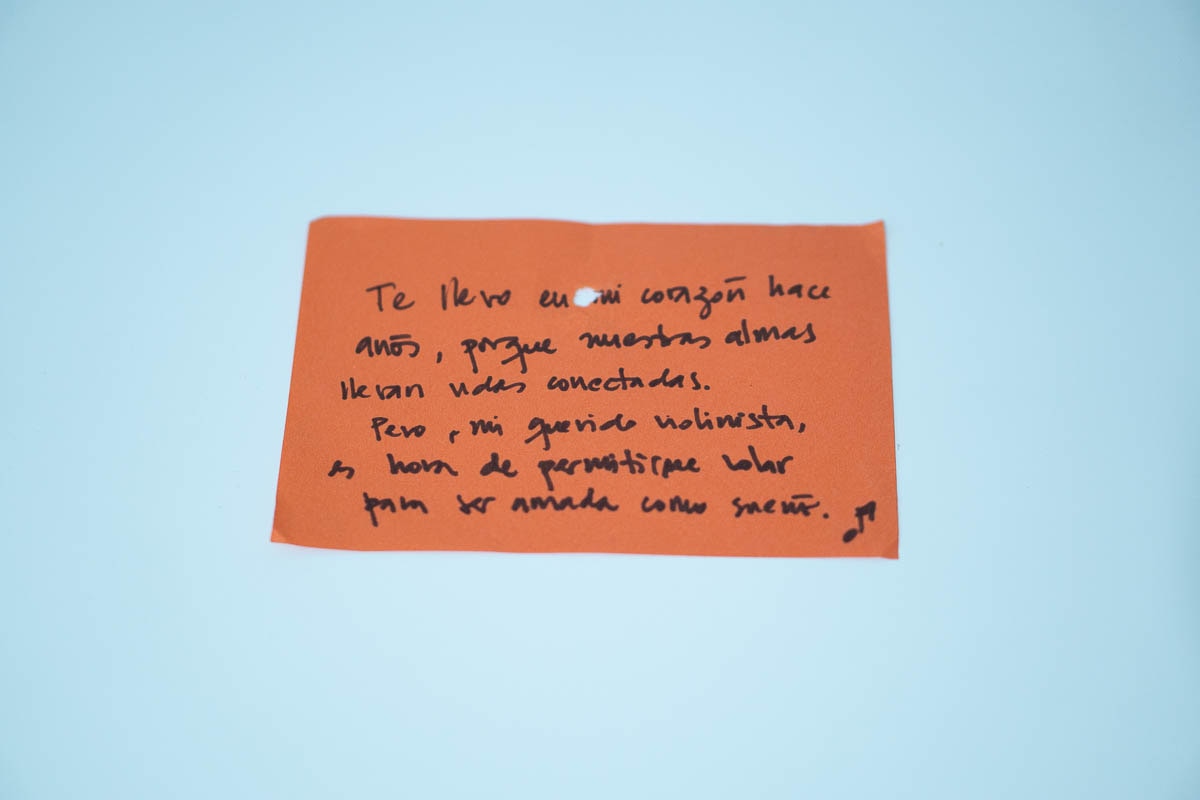 Te llevo en mi corazón hace
años, porque nuestras almas
llevan vidas conectadas.
Pero, mi querido violinista,
es hora de permitirme volar
para ser amada como sueño.